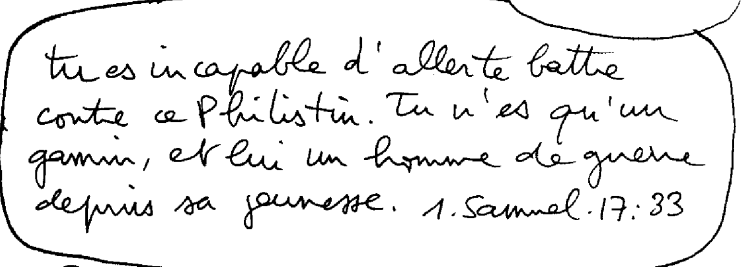 tu es incapable d'aller te battre
contre ce Philistin. Tu n'es qu'un
gamin, et lui un homme de guerre
depuis sa jeunesse. 1. Samuel. 17: 33